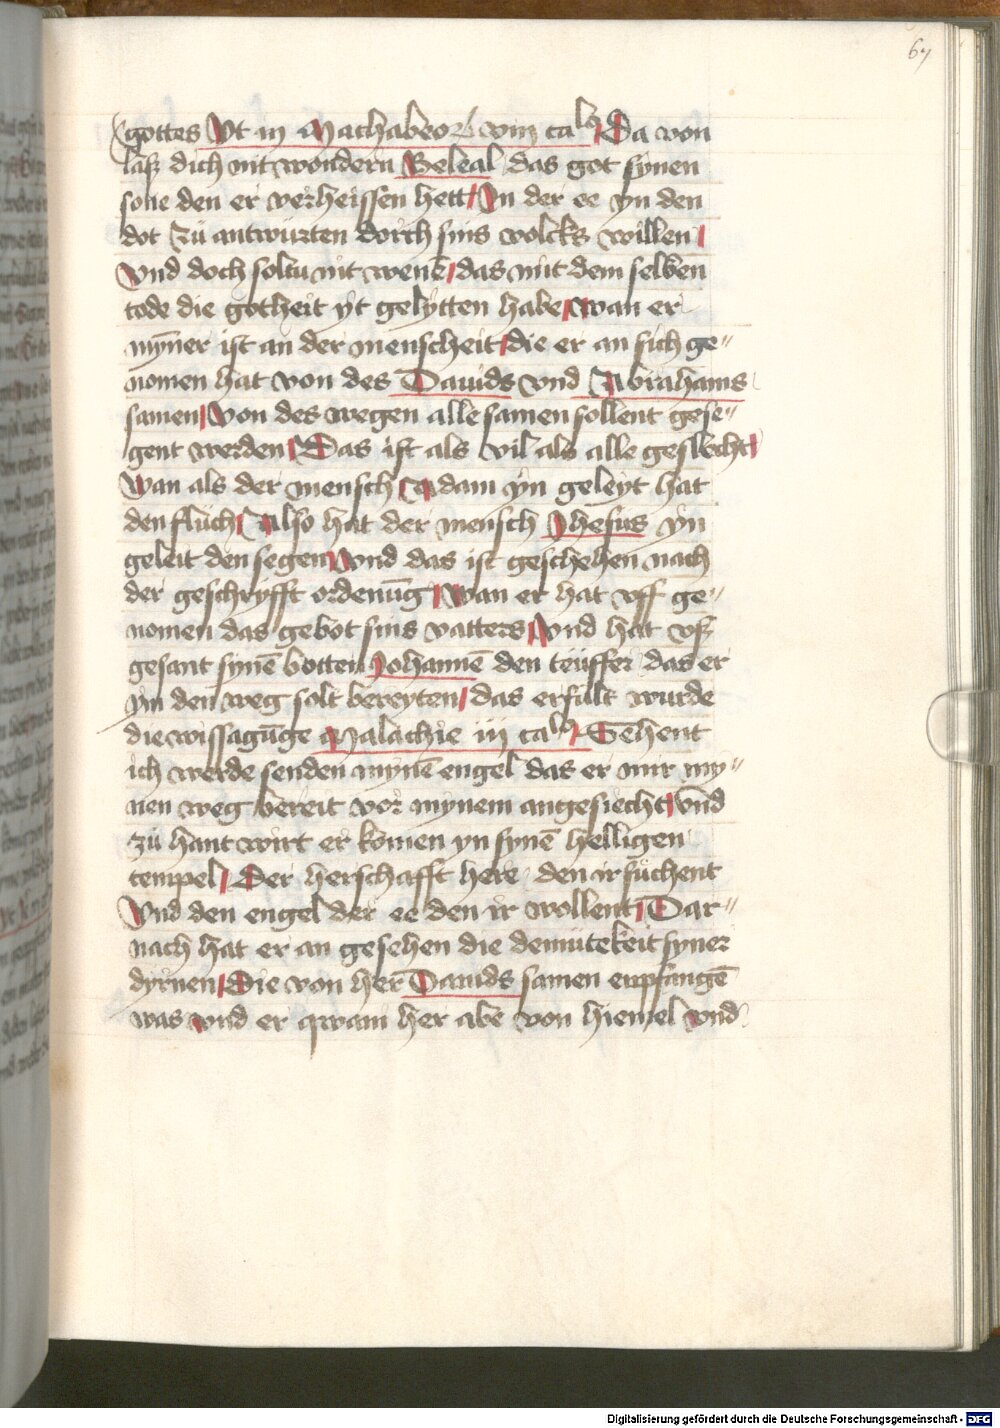 67
gottes Vt in Machabeorum viij ca Da von
laß dich nit wondern Beleal das got synen
sone den er verheissen hett Jn der ee yn den
dot zü antwürten dorch sins volcks willen
Vnd doch soltu nit wenē das mit dem selben
tode die gotheit yt gelytten habe wan er
myner ist an der menscheit die er an sich ge〃
nomen hat von des Dauids vnd Abrahams
samen Von des wegen alle samen sollent gese〃
gent werden Das ist als vil als alle geslecht
Wan als der mensch Adam yn geleyt hat
den fluch Also hat der mensch Jhesus yn
geleit den segen Vnd das ist geschehen nach
der geschryfft ordenūg Wan er hat vff ge〃
nomen das gebot sins vatters Vnd hat vß
gesant synē botten Johannē den teüffer das er
ym den weg solt bereyten das erfült wurde
die wissagūge Malachie iij ca Sehent
ich werde senden mynē engel das er mir my〃
nen weg bereit vor mynem angesiecht vnd
zü hant wirt er komen yn synē helligen
tempel Der herschafft here den ir süchent
Vnd den engel der ee den ir wollent Dar〃
nach hat er an gesehen die demütekeit syner
dyrnen Die von her Dauids samen enpfangē
was vnd er qwam her abe von hiemel vnd
Digitalisierung gefördert durch die Deutsche Forschungsgemeinschaft - DFG